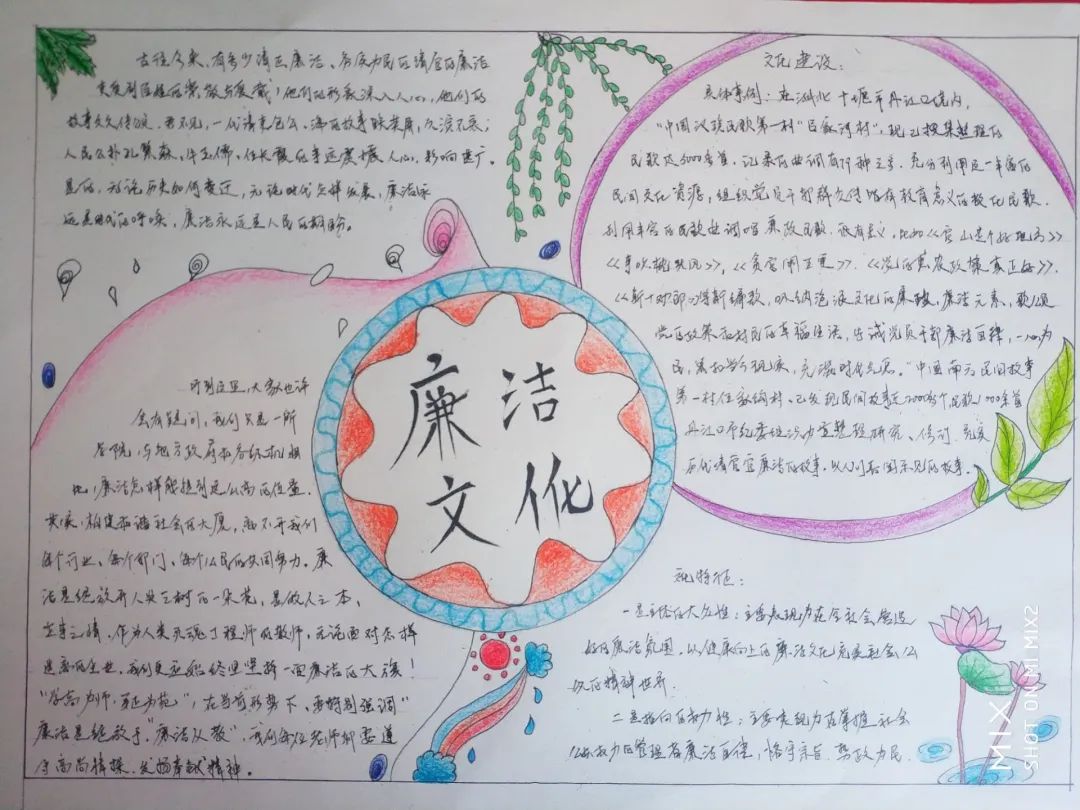 古往今来，有多少清正廉洁、为民
受到百姓的崇敬与爱戴！他们的形象深入人心，他们的
故事久久传颂。君不见，一代清官包公、海瑞故事
人民公仆孔繁森、牛玉儒、任长霞的事迹震撼人心，影响更广。
是的，无论历史如何变迁，无论时代怎样发展，廉洁永
远是时代的呼唤，廉洁永远是人民的期盼。
听到这里，大家也许
会有疑问，我们只是一所
学院，与地方政府和各级机关相
比，廉洁怎样能提到这么高的位置。
其实，构建和谐社会的大厦，离不开我们
每个行业、每个部门、每个公民的共同努力。廉
洁是绽放在人类之树的一朵花，是做人之本，
立事之端，作为人类灵魂工程师的教师，无论面对怎样
我们更应始终坚持一面廉洁的大旗！
“学高为师，身正为范”，在当前形势下，要特别强调
廉洁从教”，我们每位老师都要遵
守高尚情操，发扬奉献精神。
廉洁
文化
文化建设：
具体事例：在湖北十堰市丹江口境内，
“中国汉族民歌第一村”吕家河村”，现已搜集整理的
民歌达5000多首，记录的曲调有 种之多，充分利用这一丰富的
民间文化资源，组织党员干部群众传唱有教育意义的
利用丰富的民歌曲调唱廉政民歌，很有意义，比如《官山是个好地方》
《》，《贪官闹五更》、《党的惠农政策真正好》、
《新十对郎》等新编歌，吸纳 文化的廉政，廉洁元素，歌颂
党的政策和村民的幸福生活，告诫党员干部廉洁自律，一心为
民， 现实，充满时代气息。“中国南 民间故事
第一村伍家沟村，已发现民间故事近 多个民歌1000余首
丹江口市纪委组织力量整理研究、修订、充实
历代清官 廉洁的故事，以人们喜闻乐见的故事。
特征：
一是主体的大众性：主要表现为在全社会营造
好的廉洁氛围，以健康向上的廉洁文化充实社会公
众的精神世界。
二是指向的权力性：主要表现为在掌握社会
公共权力的管理者廉洁自律，恪守宗旨，勤政为民。
MIX
SHOT ON MI MIX2